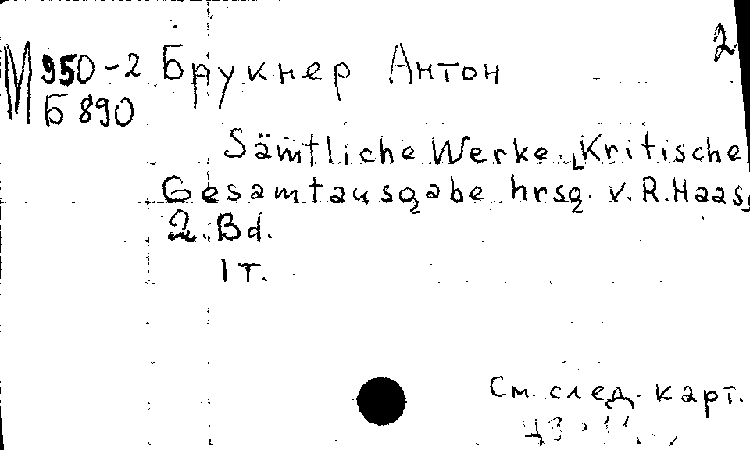 2
М 950-2 Брукнер Антон
Б 890
Sämtliche Werke. Kritische
Gesamtausgabe hrsg. v. R. Haas,
2. Bd.
1 т.
См. след. карт.